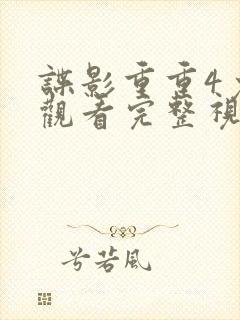 諜影重重4
觀看完整視
兮若風